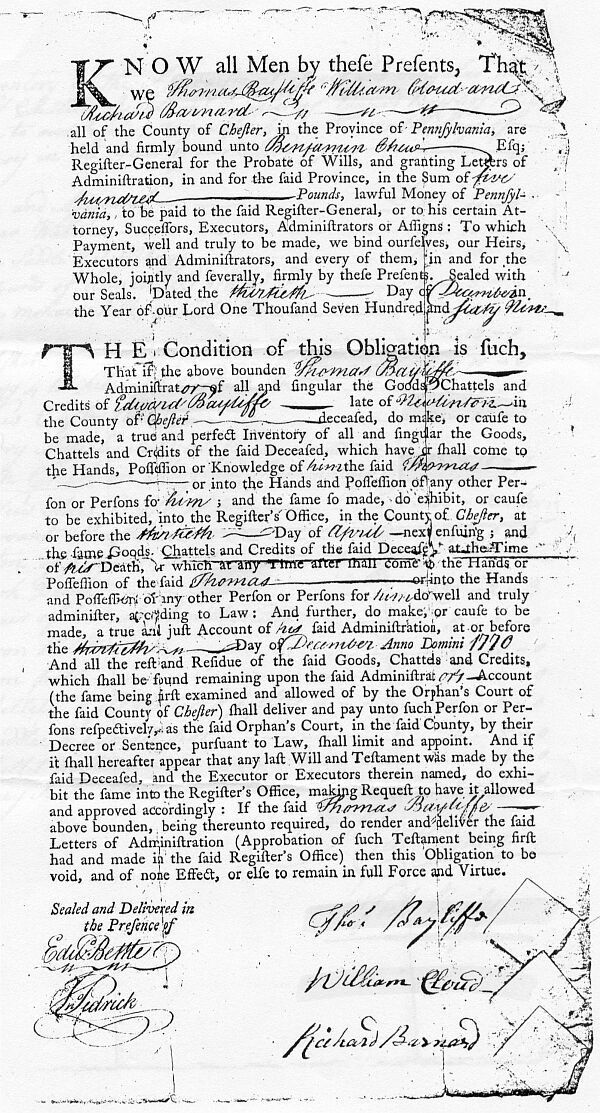 KNOW all Men by theſe Preſents, That
we Thomas Bayliffe William Cloud and
Richard Barnard
all of the County of Cheſter, in the Province of Pennſylvania, are
held and firmly bound unto Benjamin Chew Eſq;
Regiſter-General for the Probate of Wills, and granting Letters of
Adminiſtration, in and for the ſaid Province, in the Sum of five
hundred Pounds, lawful Money of Pennſyl-
vania, to be paid to the ſaid Regiſter-General, or to his certain At-
torney, Succeſſors, Executors, Adminiſtrators or Aſſigns: To which
Payment, well and truly to be made, we bind ourſelves, our Heirs,
Executors and Adminiſtrators, and every of them, in and for the
Whole, jointly and ſeverally, firmly by theſe Preſents. Sealed with
our Seals. Dated the thirtieth Day of December in
the Year of our Lord One Thouſand Seven Hundred and ſixty Nine
THE Condition of this Obligation is ſuch,
That if the above bounden Thomas Bayliffe
Adminiſtrator of all and ſingular the Goods, Chattels and
Credits of Edward Bayliffe late of Newlinton in
the County of Cheſter deceaſed, do make, or cauſe to
be made, a true and perfect Inventory of all and ſingular the Goods,
Chattels and Credits of the ſaid Deceaſed, which have or ſhall come to
the Hands, Poſſeſſion or Knowledge of him the ſaid Thomas
or into the Hands and Poſſeſſion of any other Per-
ſon or Perſons for him; and the ſame ſo made, do exhibit, or cauſe
to be exhibited, into the Regiſter's Office, in the County of Cheſter, at
or before the thirtieth Day of April next enſuing; and
the ſame Goods, Chattels and Credits of the ſaid Deceaſed, at the Time
of his Death, or which at any Time after ſhall come to the Hands or
Poſſeſſion of the ſaid Thomas or into the Hands
and Poſſeſſion of any other Perſon or Perſons for him do well and truly
adminiſter, according to Law: And further, do make, or cauſe to be
made, a true and juſt Account of his ſaid Adminiſtration, at or before
the thirtieth Day of December Anno Domini 1770
And all the reſt and Reſidue of the ſaid Goods, Chattels and Credits,
which ſhall be found remaining upon the ſaid Adminiſtrators Account
(the ſame being firſt examined and allowed of by the Orphan's Court of
the ſaid County of Cheſter) ſhall deliver and pay unto ſuch Perſon or Per-
ſons reſpectively, as the ſaid Orphan's Court, in the ſaid County, by their
Decree or Sentence, purſuant to Law, ſhall limit and appoint. And if
it ſhall hereafter appear that any laſt Will and Teſtament was made by the
ſaid Deceaſed, and the Executor or Executors therein named, do exhi-
bit the ſame into the Regiſter's Office, making Requeſt to have it allowed
and approved accordingly: If the ſaid Thomas Bayliffe
above bounden, being thereunto required, do render and deliver the ſaid
Letters of Adminiſtration (Approbation of ſuch Teſtament being firſt
had and made in the ſaid Regiſter's Office) then this Obligation to be
void, and of none Effect, or elſe to remain in full Force and Virtue.
Sealed and Delivered in
the Preſence of
Thos Bayliffe
Edwd Bettle
William Cloud
Jn Pedrick
Richard Barnard